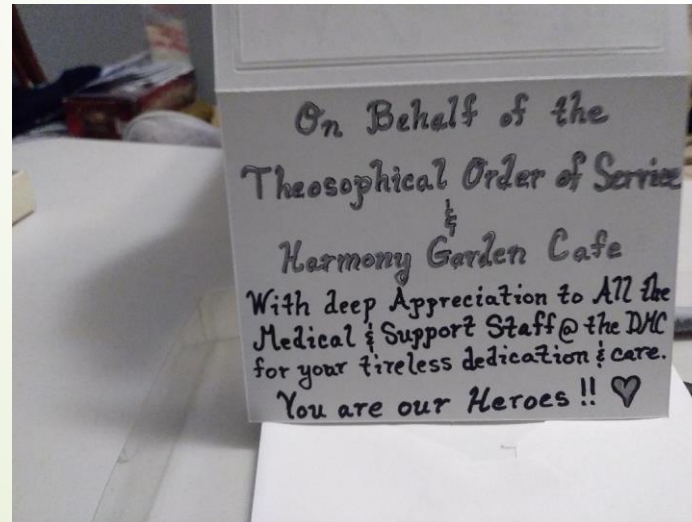 On Behalf of the
Theosophical Order of Service
&
Harmony Garden Cafe
With deep Appreciation to All the
Medical & Support Staff @ the DMC
for your tireless dedication & care.
You are our Heroes !! ♡